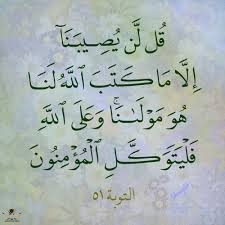 قُل لَّن يُصِيبَنَآ
إِلَّا مَا كَتَبَ ٱللَّهُ لَنَا
هُوَ مَوْلَىٰنَا ۚ وَعَلَى ٱللَّهِ
فَلْيَتَوَكَّلِ ٱلْمُؤْمِنُونَ
التوبة ٥١